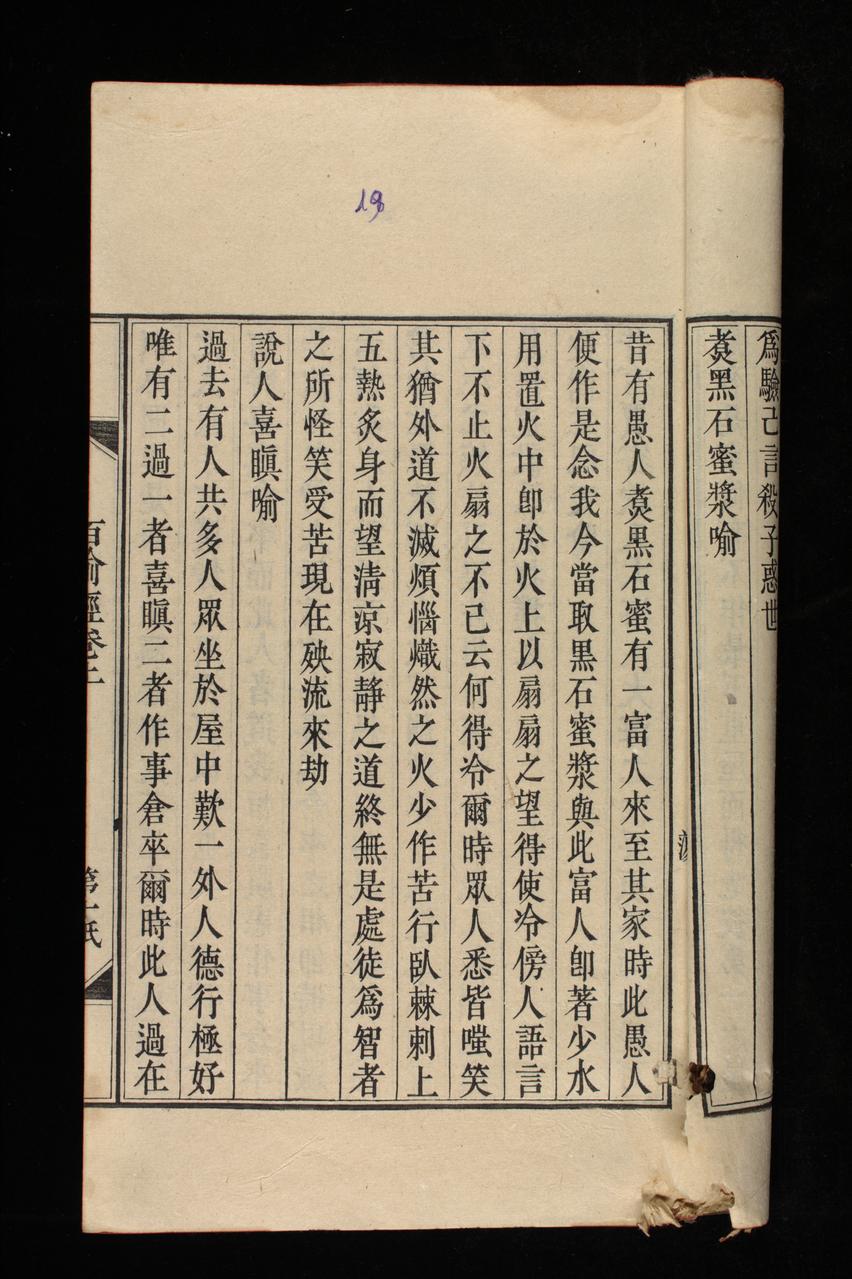 爲驗己言殺子惑世
煑黑石蜜漿喻
昔有愚人煑黑石蜜有一富人來至其家時此愚人
便作是念我今當取黑石蜜漿與此富人卽著少水
用置火中卽於火上以扇扇之望得使冷傍人語言
下不止火扇之不已云何得冷爾時眾人悉皆嗤笑
其猶外道不滅煩惱熾然之火少作苦行臥棘刺上
五熱炙身而望清涼寂靜之道終無是處徒爲智者
之所怪笑受苦現在殃流來劫
說人喜瞋喻
過去有人共多人眾坐於屋中歎一外人德行極好
唯有二過一者喜瞋二者作事倉卒爾時此人過在
百喻經卷上
第十
19